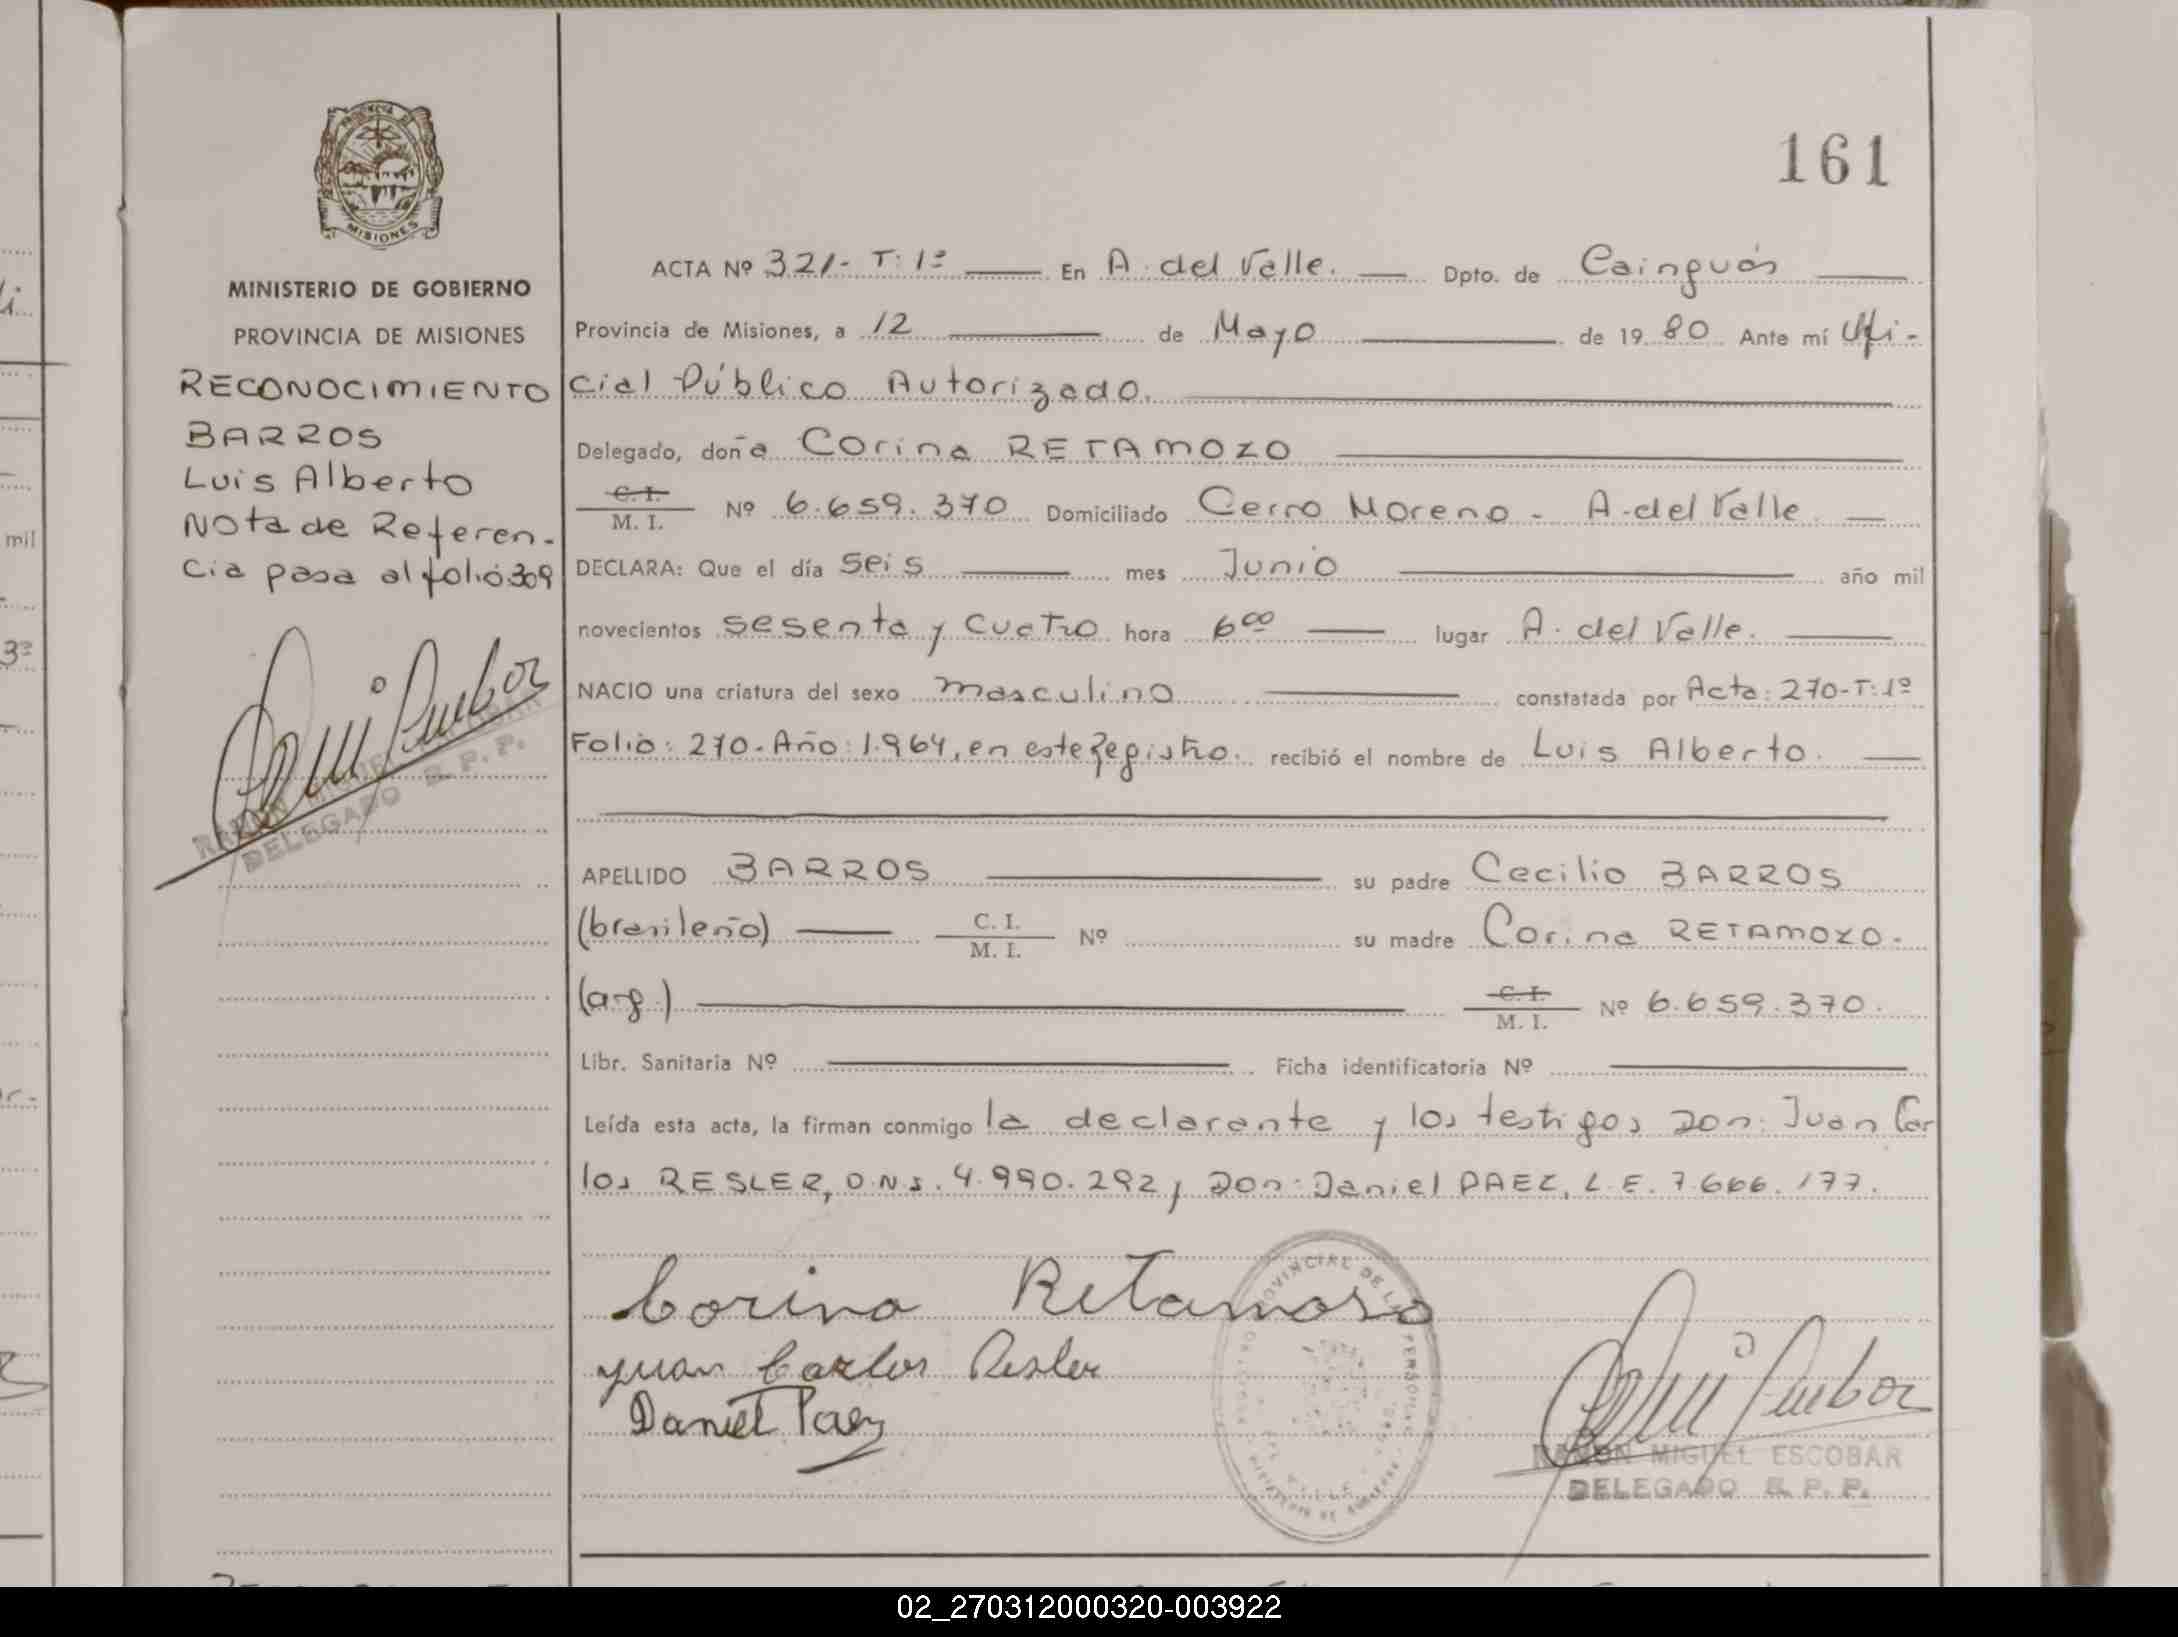 PROVINCIA DE
MISIONES
161
MINISTERIO DE GOBIERNO
PROVINCIA DE MISIONES
RECONOCIMIENTO
BARROS
Luis Alberto
Nota de Referen-
cia pasa al folio 309
RAMON MIGUEL ESCOBAR
DELEGADO R. P. P.
ACTA Nº 321- T: 1º En A. del Valle. Dpto. de Cainguás
Provincia de Misiones, a 12 de Mayo de 1980 Ante mí Ofi-
cial Público Autorizado.
Delegado, doña Corina RETAMOZO
C. I. / M. I. Nº 6.659.370 Domiciliado Cerro Moreno - A. del Valle
DECLARA: Que el día seis mes Junio año mil
novecientos sesenta y cuatro hora 6⁰⁰ lugar A. del Valle.
NACIO una criatura del sexo masculino constatada por Acta: 270-T:1º
Folio: 270-Año: 1.964, en este Registro. recibió el nombre de Luis Alberto.
APELLIDO BARROS su padre Cecilio BARROS
(brasileño) C. I. / M. I. Nº su madre Corina RETAMOZO.
(arg.) C. I. / M. I. Nº 6.659.370.
Libr. Sanitaria Nº Ficha identificatoria Nº
Leída esta acta, la firman conmigo la declarante y los testigos Don: Juan Car
los RESLER, D.N.I. 4.990.292 y Don: Daniel PAEZ, L.E. 7.666.177.
Corina Retamoso
Juan Carlos Resler
Daniel Paez
PROVINCIAL DE LAS PERSONAS
RAMON MIGUEL ESCOBAR
DELEGADO R. P. P.
02_270312000320-003922